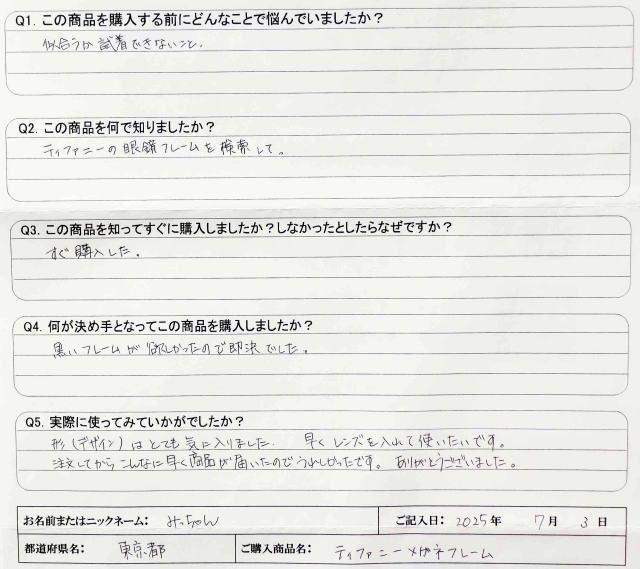 Q1. この商品を購入する前にどんなことで悩んでいましたか？
似合うか試着できないこと.
Q2. この商品を何で知りましたか？
ティファニーの眼鏡フレームを検索して。
Q3. この商品を知ってすぐに購入しましたか？しなかったとしたらなぜですか？
すぐ購入した。
Q4. 何が決め手となってこの商品を購入しましたか？
黒いフレームが欲しかったので即決でした。
Q5. 実際に使ってみていかがでしたか？
形（デザイン）はとても気に入りました. 早くレンズを入れて使いたいです。
注文してからこんなに早く商品が届いたのでうれしかったです。ありがとうございました。
お名前またはニックネーム： みっちゃん ご記入日： 2025年 7月 3日
都道府県名： 東京都 ご購入商品名： ティファニーメガネフレーム